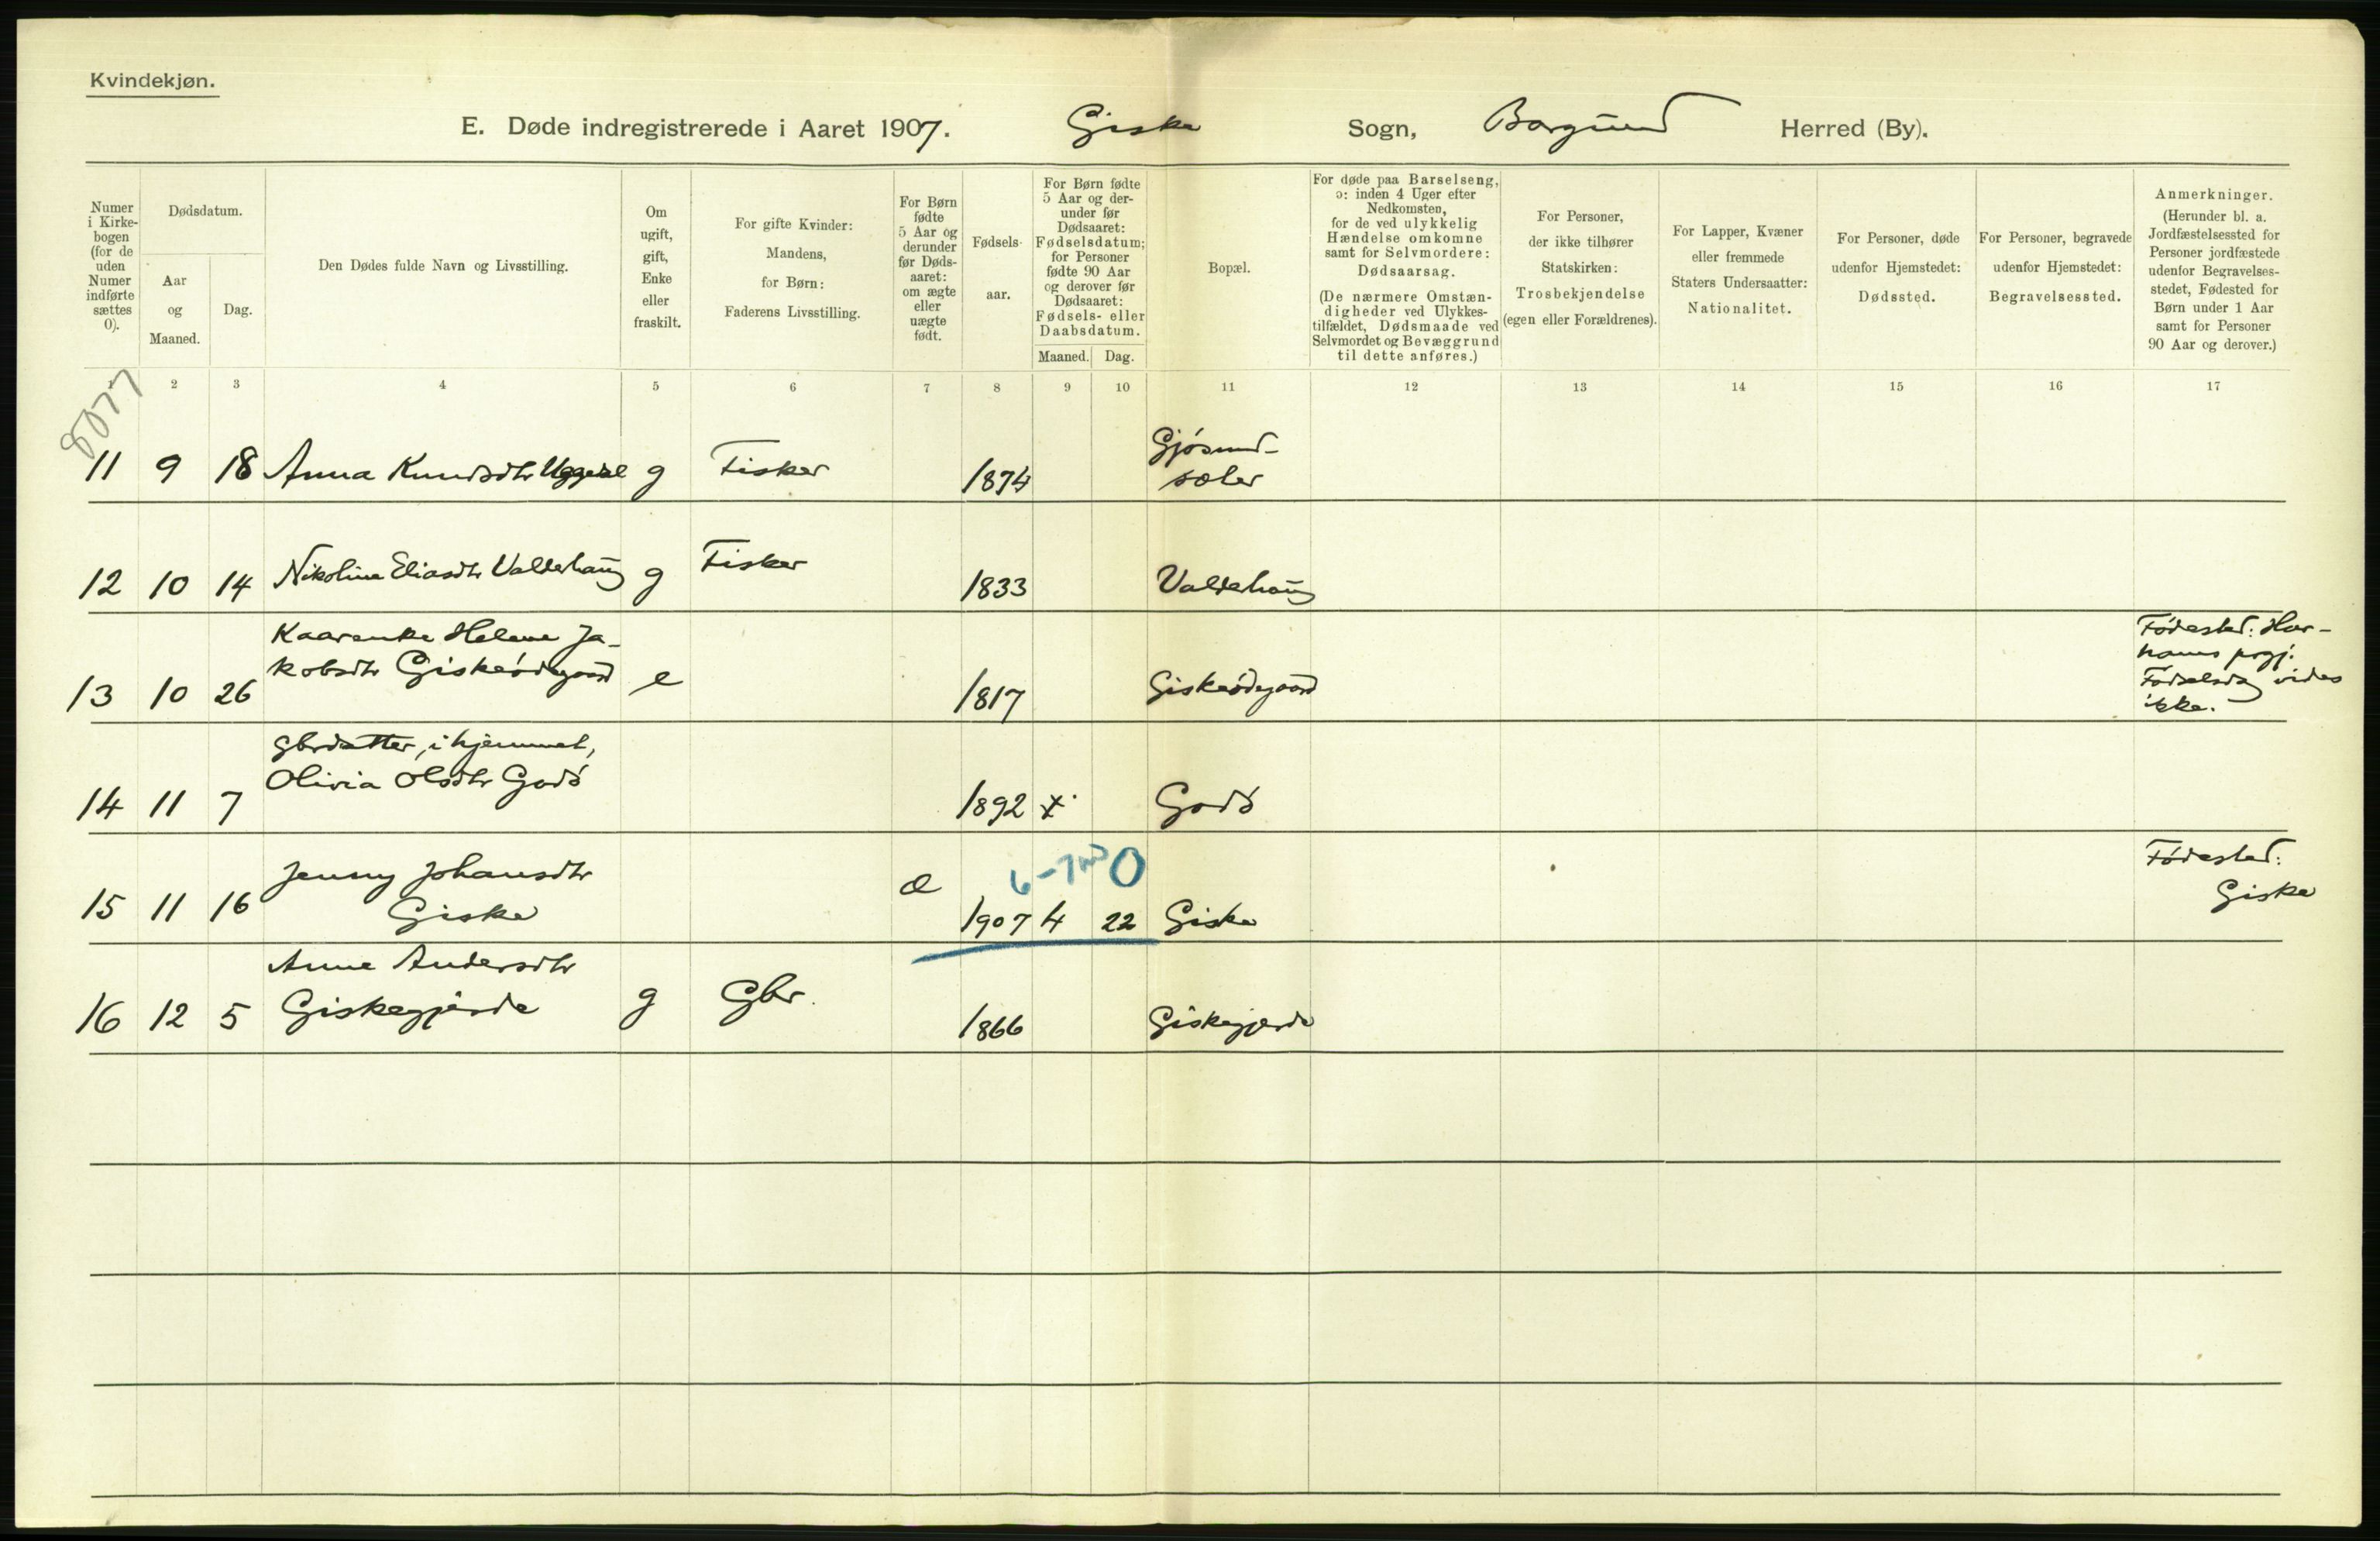 Kvindekjøn.
E. Døde indregistrerede i Aaret 1907. Giske Sogn, Borgund Herred (By).
Numer i Kirkebogen (for de uden Numer indførte sættes 0).
Dødsdatum.
Aar og Maaned.
Dag.
Den Dødes fulde Navn og Livsstilling.
Om ugift, gift, Enke eller fraskilt.
For gifte Kvinder: Mandens, for Børn: Faderens Livsstilling.
For Børn fødte 5 Aar og derunder før Dødsaaret: om ægte eller uægte født.
Fødselsaar.
For Børn fødte 5 Aar og derunder før Dødsaaret: Fødselsdatum; for Personer fødte 90 Aar og derover før Dødsaaret: Fødsels- eller Daabsdatum.
Maaned. Dag.
Bopæl.
For døde paa Barselseng, ɔ: inden 4 Uger efter Nedkomsten, for de ved ulykkelig Hændelse omkomne samt for Selvmordere: Dødsaarsag.
(De nærmere Omstændigheder ved Ulykkestilfældet, Dødsmaade ved Selvmordet og Bevæggrund til dette anføres.)
For Personer, der ikke tilhører Statskirken: Trosbekjendelse (egen eller Forældrenes).
For Lapper, Kvæner eller fremmede Staters Undersaatter: Nationalitet.
For Personer, døde udenfor Hjemstedet: Dødssted.
For Personer, begravede udenfor Hjemstedet: Begravelsessted.
Anmerkninger.
(Herunder bl. a. Jordfæstelsessted for Personer jordfæstede udenfor Begravelsesstedet, Fødested for Børn under 1 Aar samt for Personer 90 Aar og derover.)
1 2 3 4 5 6 7 8 9 10 11 12 13 14 15 16 17
8077
11 9 18 Anna Knudsdtr Uggedal g Fisker 1874 Gjøsund-
12 10 14 Nikoline Eliasdtr Valderhaug g Fisker 1833 Valderhaug
Kaaranke Helene Ja-
kobsdtr Giskeødegaard
13 10 26 e 1817 Giskeødegaard
Fødested: Har-
hams prgj.
Fødselsdag vides
ikke.
Gbrdatter, i hjemmet,
Olivia Olsdtr Godø
14 11 7 1892 Godø
6-7 md 0
Jenny Johansdtr
Giske
15 11 16 æ 1907 4 22 Giske
Fødested:
Giske
Anne Andersdtr
Giskegjerde
16 12 5 g Gbr. 1866 Giskegjerde